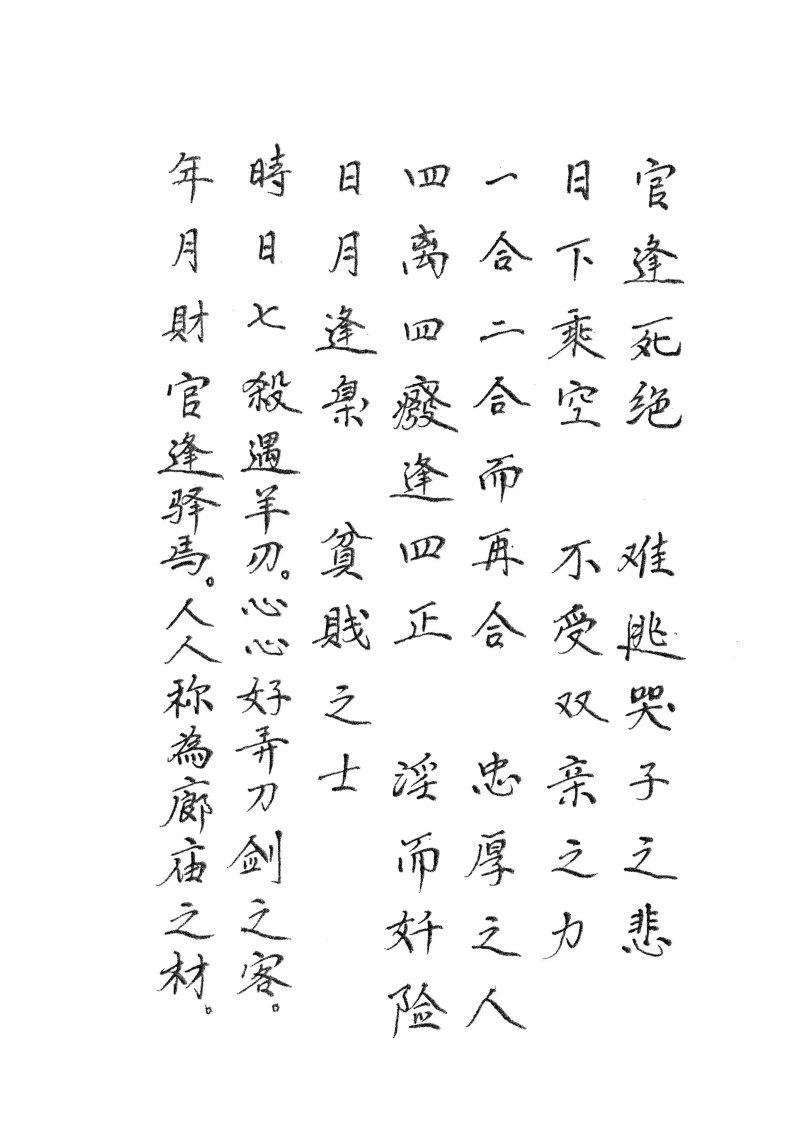 官逢死绝　难逃哭子之悲
日下乘空　不受双亲之力
一合二合而再合　忠厚之人
四离四癈逢四正　淫而奸险
日月逢梟　貧賎之士
時日七殺遇羊刃。心心好弄刀劍之客。
年月財官逢驿馬。人人称為廊庙之材。